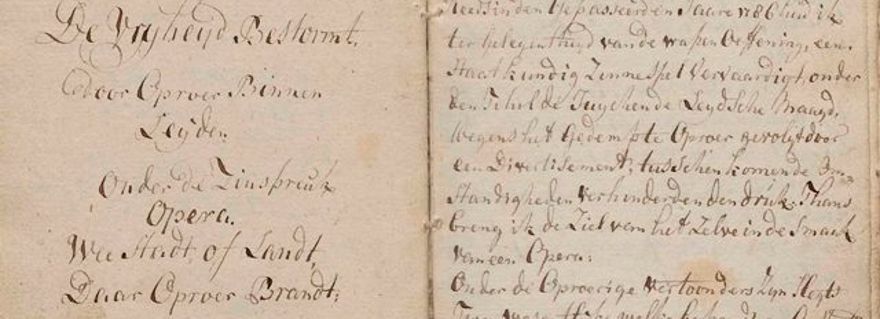 De Vryheyd Bestormt.
Door Oproer Binnen
Leyden
Onder de Zinspreuk
Opera.
Wee Stadt, of Landt,
Daar Oproer Brandt:
Reeds in den Gepasseerden Jaare 1786 had ik
ter Gelegentheyd van de wapen Oeffening, een
Staatkundig Zinnespel vervaardigt, onder
den Titul de Juychende Leydsche Maagd,
wegens het Gedempte Oproer gevolgt door
een Divertisement; tusschen komende Om-
standigheden verhinderden den druk. Thans
breng ik de Ziel van het Zelve in de Smaak
van een Opera:
Onder de Oproerige vertoonders Zyn Slegts